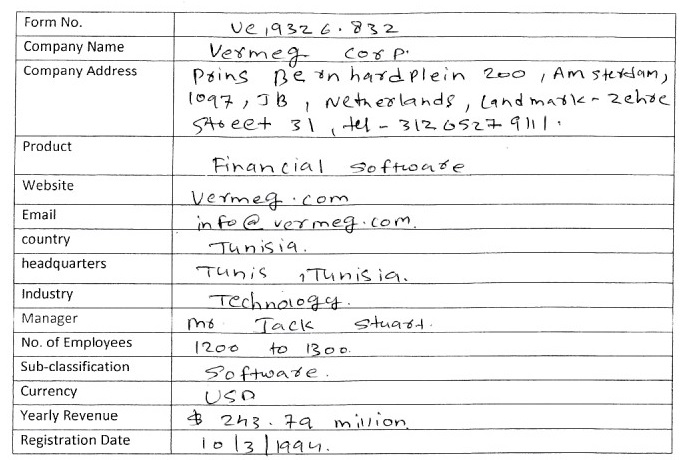 Form No. Ve,9326.832
Company Name Vermeg corp.
Company Address Prins Bernhardplein 200, Amsterdam,
1097, JB, Netherlands, Landmark - Zehre
Street 31, tel - 31206527 9111.
Product Financial software
Website Vermeg.com
Email info@vermeg.com.
country Tunisia.
headquarters Tunis, Tunisia.
Industry Technology.
Manager Mr. Jack Stuart.
No. of Employees 1200 to 1300.
Sub-classification Software.
Currency USD
Yearly Revenue $ 243.79 million.
Registration Date 10/3/1994.